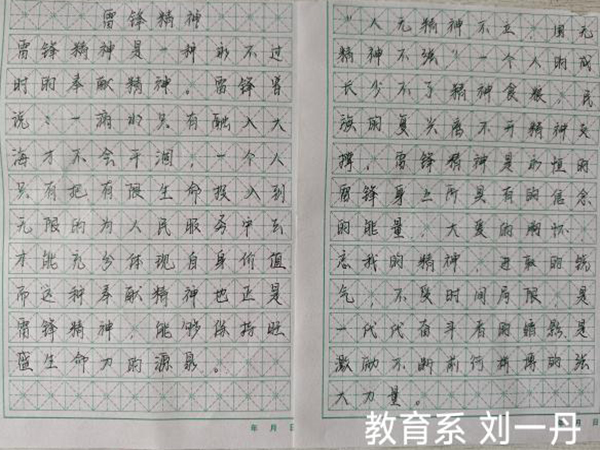 雷锋精神
雷锋精神是一种永不过
时的奉献精神。雷锋曾
说：一滴水只有融入大
海才不会干涸，一个人
只有把有限生命投入到
无限的为人民服务中去
才能充分体现自身价值
而这种奉献精神也正是
雷锋精神，能够保持旺
盛生命力的源泉。
"人无精神不立，国无
精神不强"一个人的成
长少不了精神食粮，民
族的复兴离不开精神支
撑，雷锋精神是永恒的
雷锋身上所具有的信念
的能量、大爱的胸怀、
忘我的精神，进取的锐
气，不受时间局限，是
一代代奋斗者的缩影，是
激励不断前行拼搏的强
大力量。
年 月 日
年 月 日
教育系 刘一丹